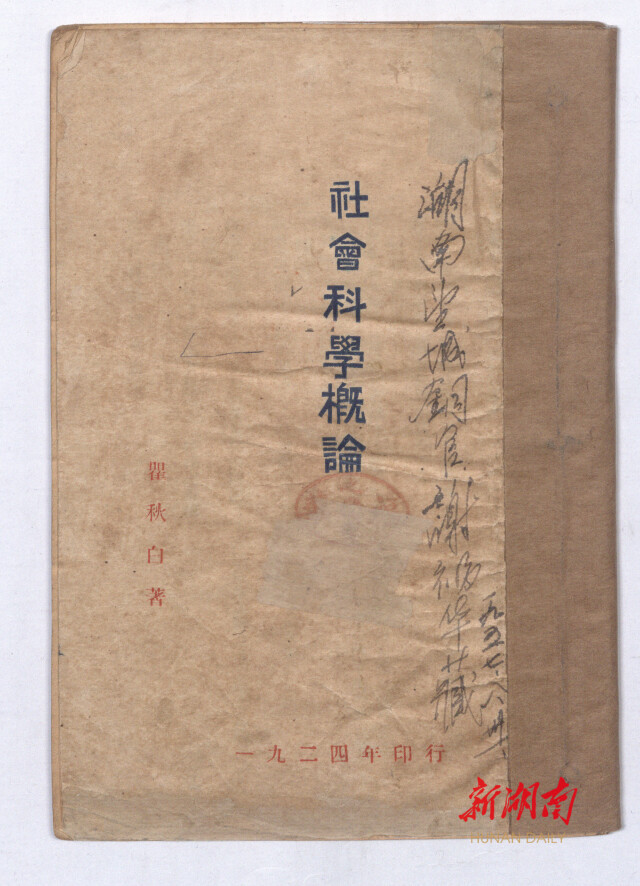 湖南望城銅官謝福华藏
一九五七.八.卅一.
社會科學概論
瞿秋白著
一九二四年印行
新湖南
HUNAN DAILY